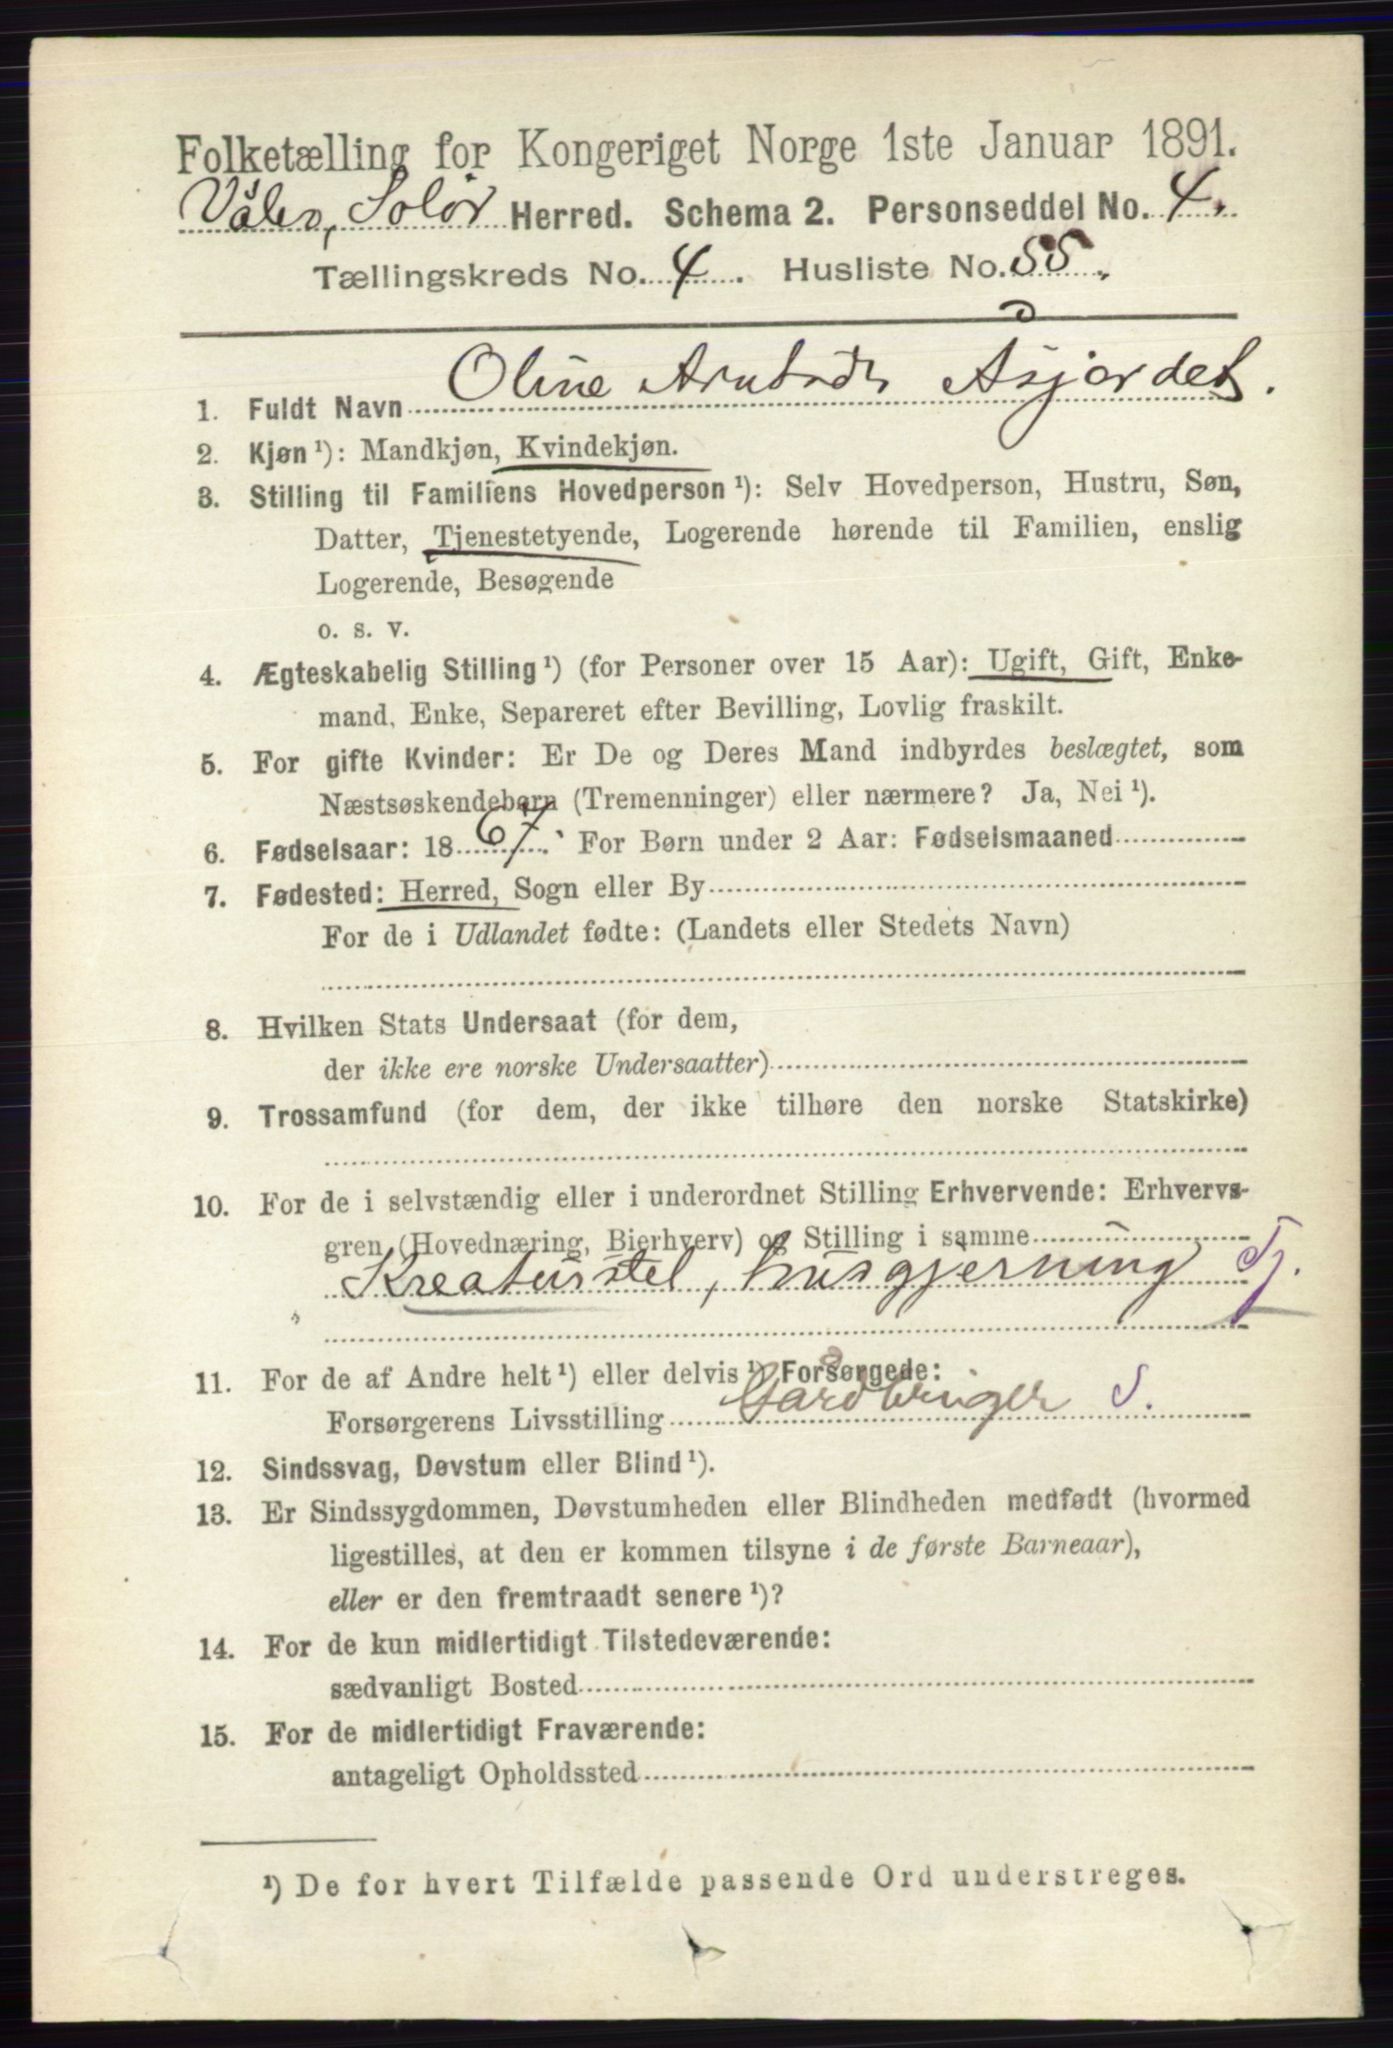 Folketælling for Kongeriget Norge 1ste Januar 1891.
Våler, Solør Herred. Schema 2. Personseddel No. 4.
Tællingskreds No. 4. Husliste No. 55.
1. Fuldt Navn Oline Åsjordet.
2. Kjøn ¹): Mandkjøn, Kvindekjøn.
3. Stilling til Familiens Hovedperson ¹): Selv Hovedperson, Hustru, Søn,
Datter, Tjenestetyende, Logerende hørende til Familien, enslig
Logerende, Besøgende
o. s. v.
4. Ægteskabelig Stilling ¹) (for Personer over 15 Aar): Ugift, Gift, Enke-
mand, Enke, Separeret efter Bevilling, Lovlig fraskilt.
5. For gifte Kvinder: Er De og Deres Mand indbyrdes beslægtet, som
Næstsøskendebørn (Tremenninger) eller nærmere? Ja, Nei ¹).
6. Fødselsaar: 1867. For Børn under 2 Aar: Fødselsmaaned
7. Fødested: Herred, Sogn eller By
For de i Udlandet fødte: (Landets eller Stedets Navn)
8. Hvilken Stats Undersaat (for dem,
der ikke ere norske Undersaatter)
9. Trossamfund (for dem, der ikke tilhøre den norske Statskirke)
10. For de i selvstændig eller i underordnet Stilling Erhvervende: Erhvervs-
gren (Hovednæring, Bierhverv) og Stilling i samme
Kreaturstel, husgjerning Tj.
11. For de af Andre helt ¹) eller delvis ¹) Forsørgede:
Forsørgerens Livsstilling Gårdbruger S.
12. Sindssvag, Døvstum eller Blind ¹).
13. Er Sindssygdommen, Døvstumheden eller Blindheden medfødt (hvormed
ligestilles, at den er kommen tilsyne i de første Barneaar),
eller er den fremtraadt senere ¹)?
14. For de kun midlertidigt Tilstedeværende:
sædvanligt Bosted
15. For de midlertidigt Fraværende:
antageligt Opholdssted
¹) De for hvert Tilfælde passende Ord understreges.